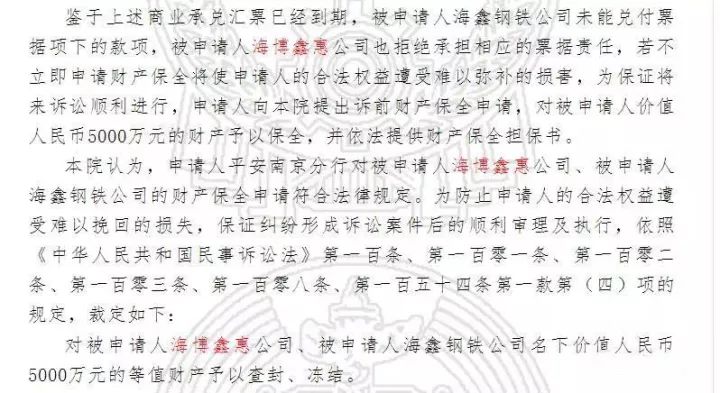 鉴于上述商业承兑汇票已经到期，被申请人海鑫钢铁公司未能兑付票
据项下的款项，被申请人海博鑫惠公司也拒绝承担相应的票据责任，若不
立即申请财产保全将使申请人的合法权益遭受难以弥补的损害，为保证将
来诉讼顺利进行，申请人向本院提出诉前财产保全申请，对被申请人价值
人民币5000万元的财产予以保全，并依法提供财产保全担保书。
本院认为，申请人平安南京分行对被申请人海博鑫惠公司、被申请人
海鑫钢铁公司的财产保全申请符合法律规定。为防止申请人的合法权益遭
受难以挽回的损失，保证纠纷形成诉讼案件后的顺利审理及执行，依照
《中华人民共和国民事诉讼法》第一百条、第一百零一条、第一百零二
条、第一百零三条、第一百零八条、第一百五十四条第一款第（四）项的
规定，裁定如下：
对被申请人海博鑫惠公司、被申请人海鑫钢铁公司名下价值人民币
5000万元的等值财产予以查封、冻结。